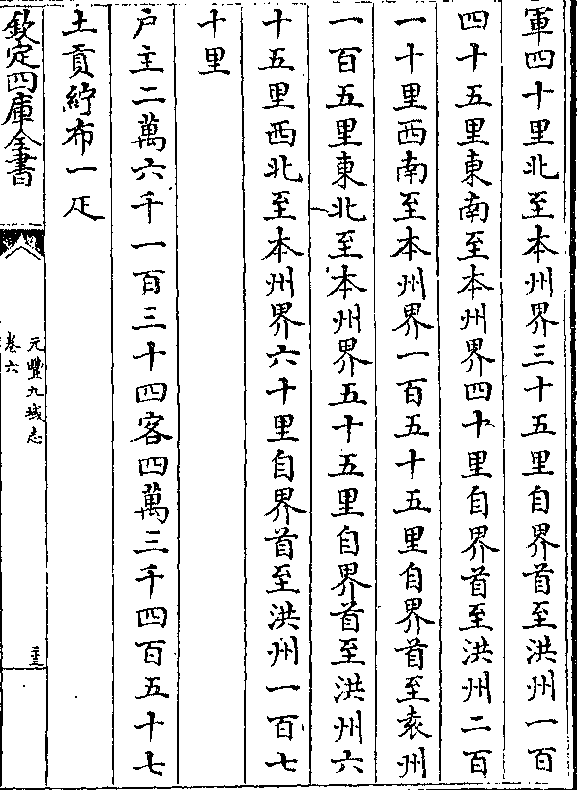 軍四十里北至本州界三十五里自界首至洪州一百
四十五里東南至本州界四十里自界首至洪州二百
一十里西南至本州界一百五十五里自界首至袁州
一百五里東北至本州界五十五里自界首至洪州六
十五里西北至本州界六十里自界首至洪州一百七
十里
户主二萬六千一百三十四客四萬三千四百五十七
土貢紵布一疋
欽定四庫全書
元豐九域志
卷六